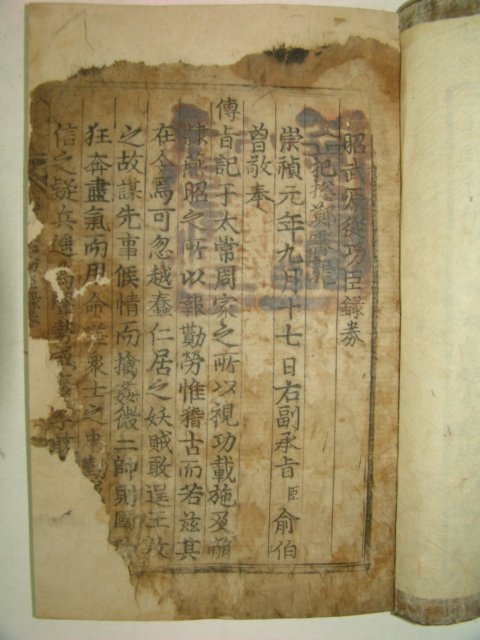 昭武原從功臣錄券
崇禎元年九月十七日右副承旨臣俞伯
曾敬奉
傳旨記于太常周家之所以視功載施及崩
隷燕昭之所以報勤勞惟稽古而若玆其
在今焉可忽越蠢仁居之妖賊敢逞王敦
之故謀先事候情而擒姦微二帥則國
狂奔盡氣而用命 衆士之忠勤
信之疑兵 勢或